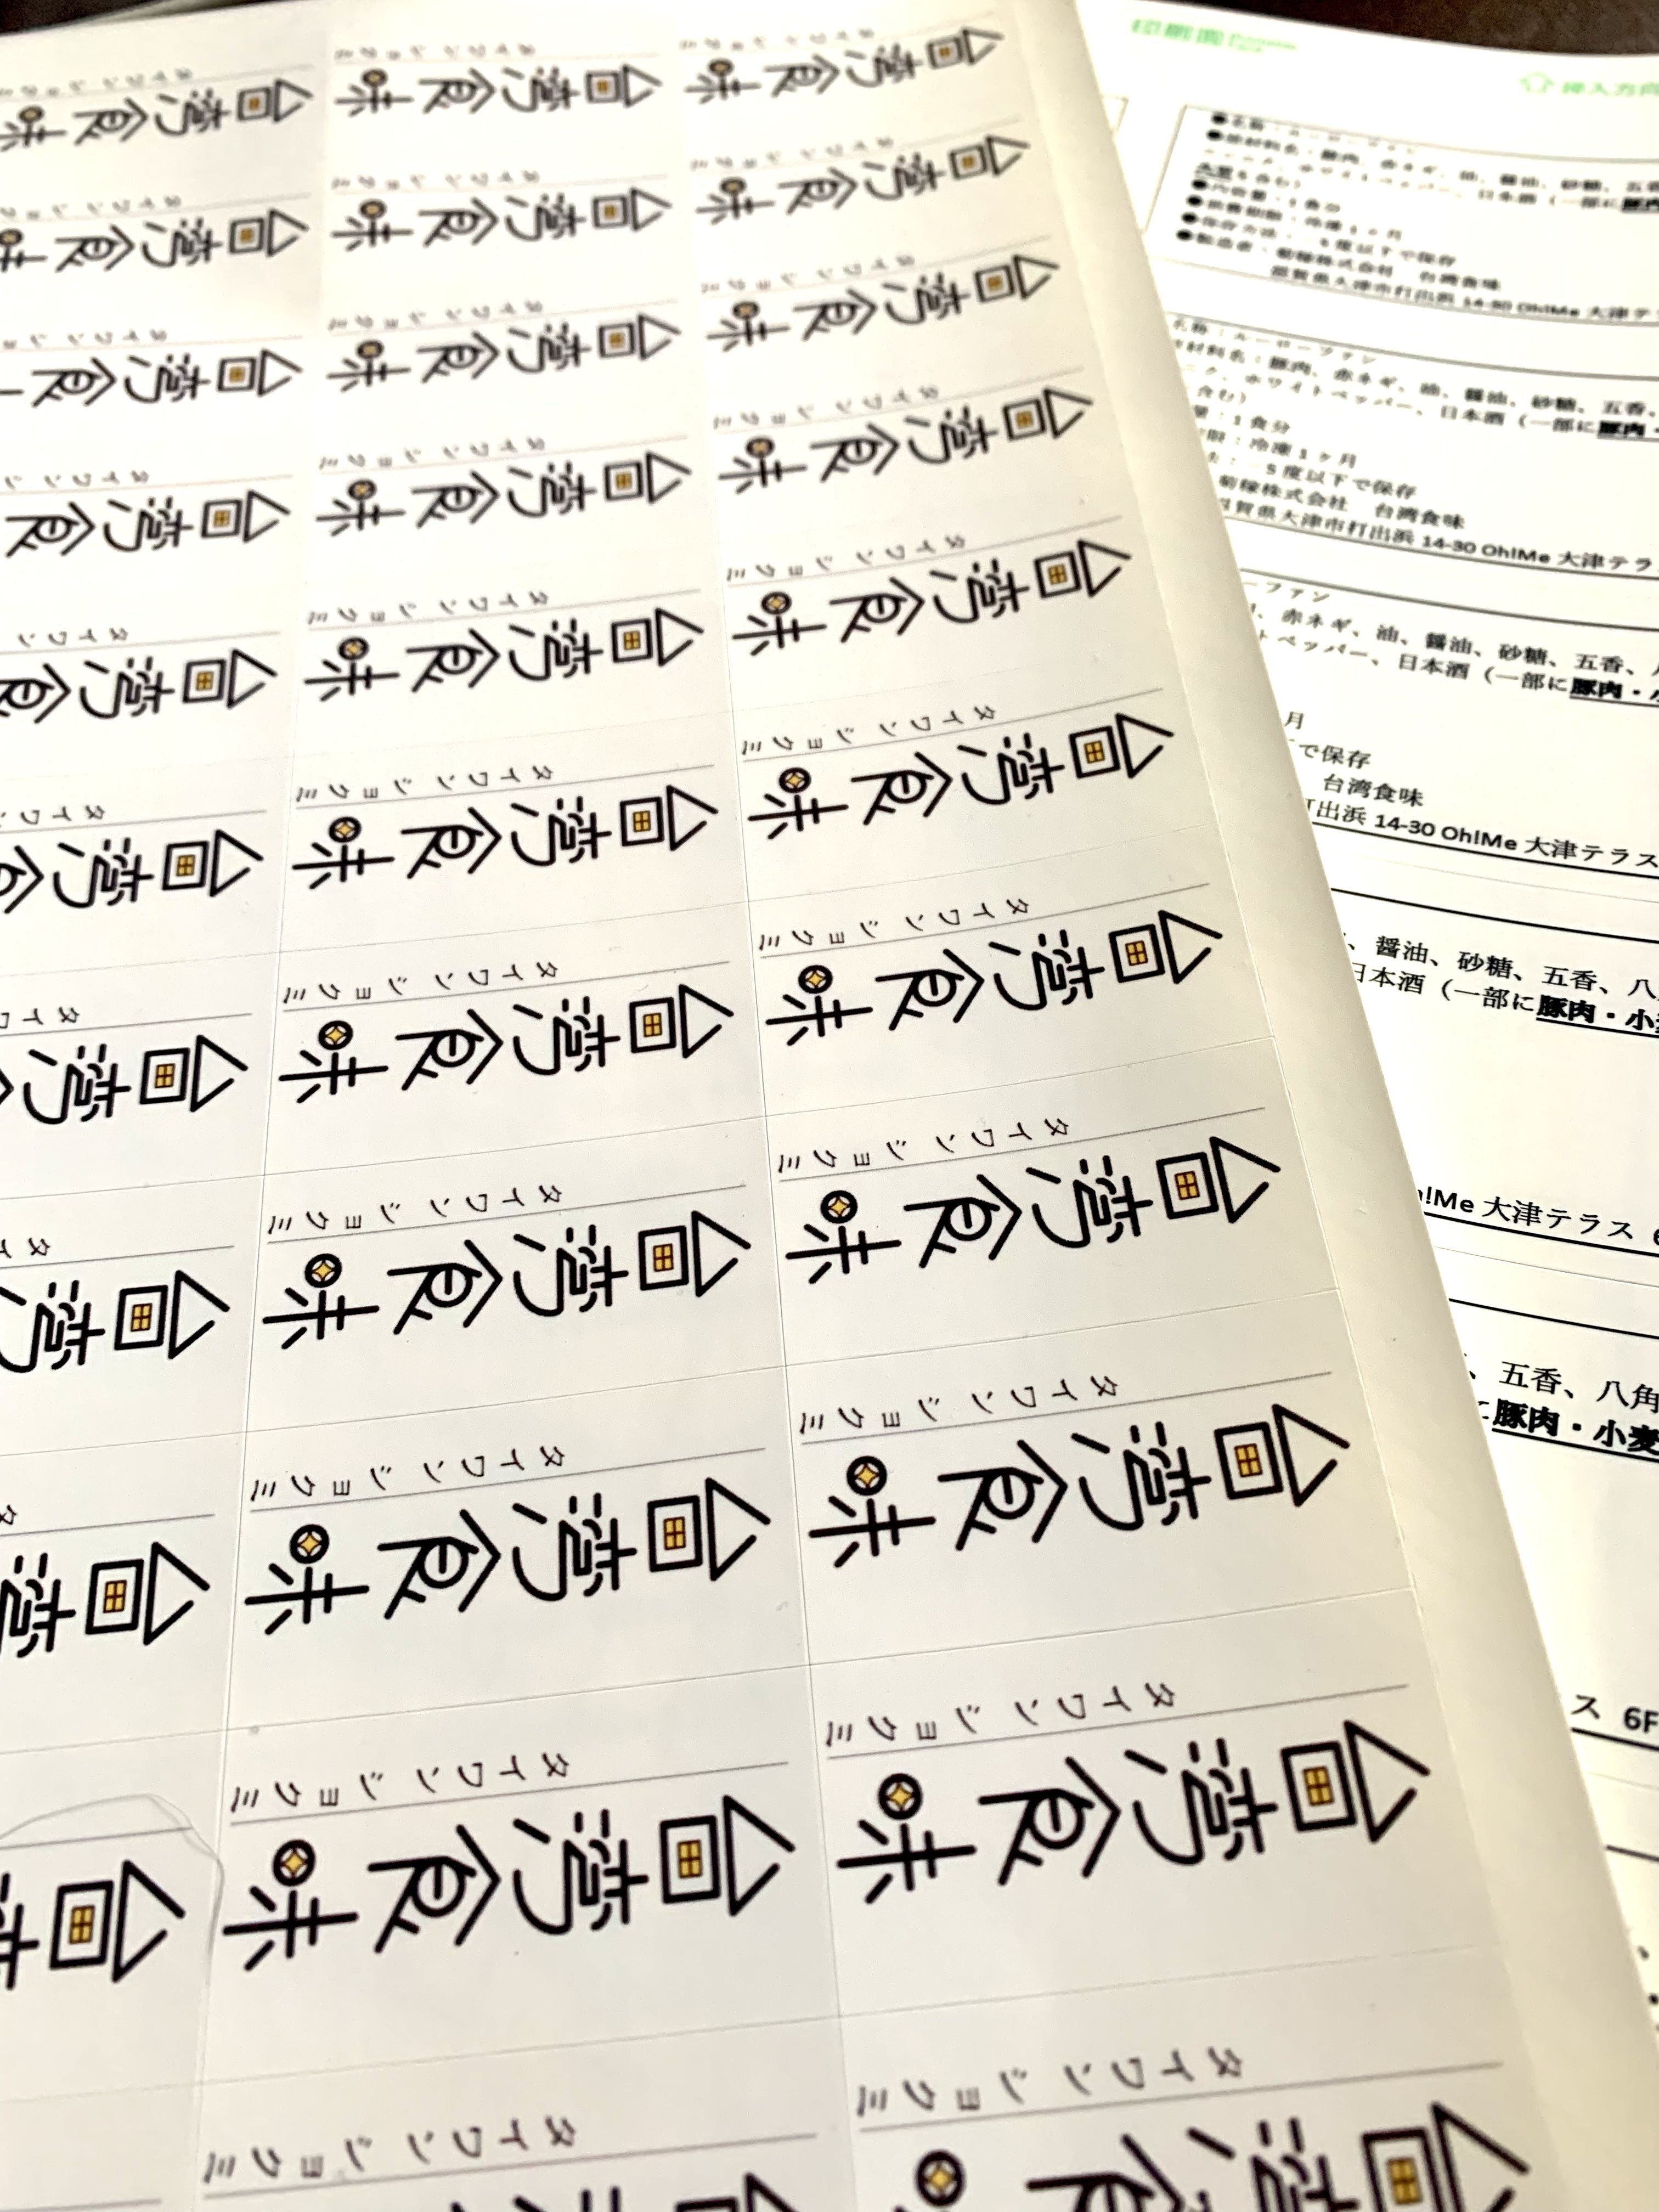 台湾食味
タイワンショクミ
印刷面
挿入方向
●名称：ルーローファン
●原材料名：豚肉、赤ネギ、油、醤油、砂糖、五香
ホワイトペッパー、日本酒（一部に豚肉
大豆を含む）
●内容量：1食分
●賞味期限：冷凍1ヶ月
●保存方法：－5度以下で保存
●製造者：菊稼株式会社　台湾食味
滋賀県大津市打出浜 14-30 Oh!Me 大津テラ
名称：ルーローファン
材料名：豚肉、赤ネギ、油、醤油、砂糖、五香、
ニク、ホワイトペッパー、日本酒（一部に豚肉・
含む）
量：1食分
限：冷凍1ヶ月
法：－5度以下で保存
菊稼株式会社　台湾食味
滋賀県大津市打出浜 14-30 Oh!Me 大津テラ
ファン
、赤ネギ、油、醤油、砂糖、五香、
トペッパー、日本酒（一部に豚肉・
月
で保存
台湾食味
打出浜 14-30 Oh!Me 大津テラス
、醤油、砂糖、五香、八
日本酒（一部に豚肉・小
h!Me 大津テラス 6
、五香、八角
に豚肉・小麦
ス 6F